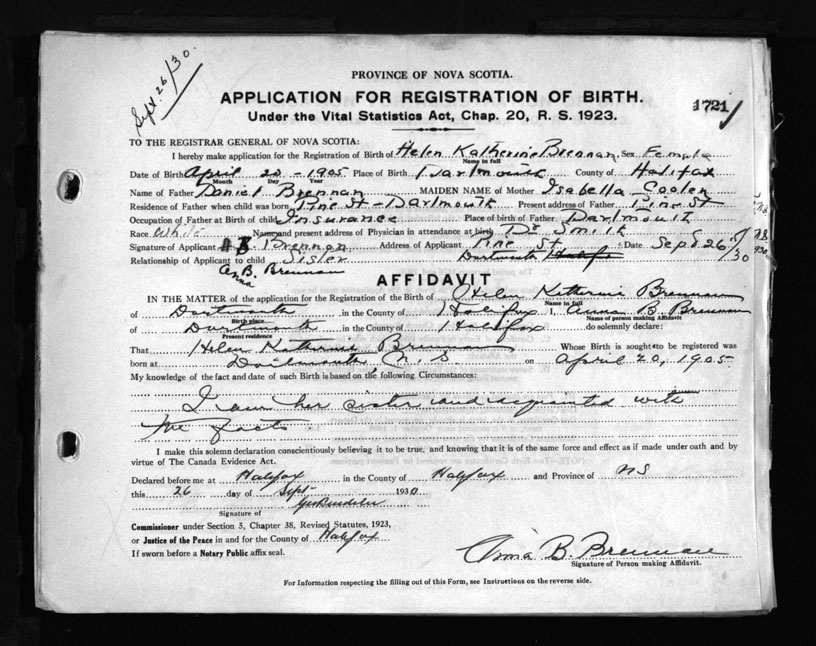 Sept. 26/30.
PROVINCE OF NOVA SCOTIA.
APPLICATION FOR REGISTRATION OF BIRTH.
1721
Under the Vital Statistics Act, Chap. 20, R. S. 1923.
TO THE REGISTRAR GENERAL OF NOVA SCOTIA:
I hereby make application for the Registration of Birth of Helen Katherine Brennan, Sex Female
Name in full
Date of Birth April 20 - 1905 Place of Birth Dartmouth County of Halifax
Month Day Year
Name of Father Daniel Brennan MAIDEN NAME of Mother Isabella Coolen
Residence of Father when child was born Pine St - Dartmouth Present address of Father Pine St
Occupation of Father at Birth of child Insurance Place of birth of Father Dartmouth
Race White Name and present address of Physician in attendance at birth Dr Smith
Signature of Applicant A B Brennan Address of Applicant Pine St Date Sept 26/30
Relationship of Applicant to child Sister Dartmouth Halifax
Anna B. Brennan
AFFIDAVIT
IN THE MATTER of the application for the Registration of the Birth of Helen Katherine Brennan
Name in full
of Dartmouth in the County of Halifax I, Anna B Brennan
Birth place Name of person making Affidavit
of Dartmouth in the County of Halifax do solemnly declare:
Present residence
That Helen Katherine Brennan Whose Birth is sought to be registered was
born at Dartmouth N.S. on April 20, 1905
My knowledge of the fact and date of such Birth is based on the following Circumstances:
I am her sister and acquainted with
the facts
I make this solemn declaration conscientiously believing it to be true, and knowing that it is of the same force and effect as if made under oath and by
virtue of The Canada Evidence Act.
Declared before me at Halifax in the County of Halifax and Province of NS
this 26 day of Sept 1930
Signature of
Commissioner under Section 5, Chapter 38, Revised Statutes, 1923,
or Justice of the Peace in and for the County of Halifax
If sworn before a Notary Public affix seal.
Anna B. Brennan
Signature of Person making Affidavit.
For Information respecting the filling out of this Form, see Instructions on the reverse side.